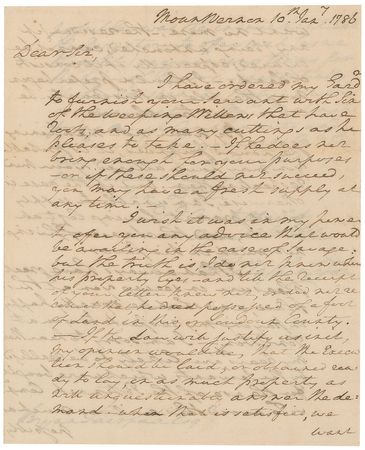 Mount Vernon 10th Jany 1786
Dear Sir,
I have ordered my Gard'r
to furnish your Servant with Six
of the Weeping Willows that have
Roots, and as many cuttings as he
pleases to take. — If he does not
bring enough for your purposes
— or if these should not succeed,
you may have a fresh supply at
any time. —
I wish it was in my power
to offer you any advice that would
be availing in the case of Savage:
but the truth is, I do not know where
his property lies — and till the receipt
of your letter knew not, or did not re
collect that he died possessed of a foot
of Land in this, or Loudoun County.
— If the Law will justify as in it,
my opinion would be, that the Execu
tion should be laid, or obtained rea
dy to lay, on as much property as
will unquestionably answer the de
mand — when that is satisfied, we
want